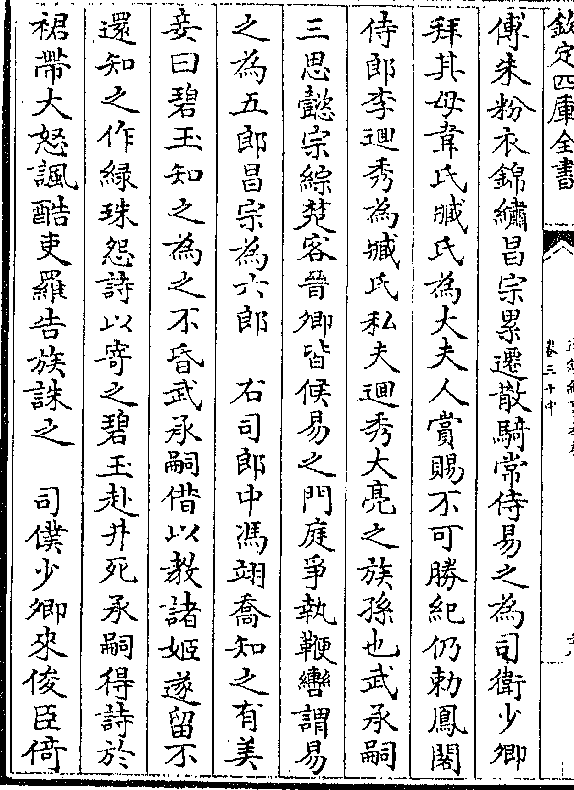 欽定四庫全書
卷三十中
傅朱粉衣錦繡昌宗累遷散騎常侍易之為司衛少卿
拜其母韋氏臧氏為大夫人賞賜不可勝紀仍勅鳳閣
侍郎李迥秀為臧氏私夫迥秀大亮之族孫也武承嗣
三思懿宗綜楚客晉卿皆候易之門庭爭執鞭轡謂易
之為五郎昌宗為六郎　右司郎中馮翊喬知之有美
妾曰碧玉知之為之不昏武承嗣借以教諸姬遂留不
還知之作緑珠怨詩以寄之碧玉赴井死承嗣得詩於
裙帶大怒諷酷吏羅告族誅之　司僕少卿來俊臣倚